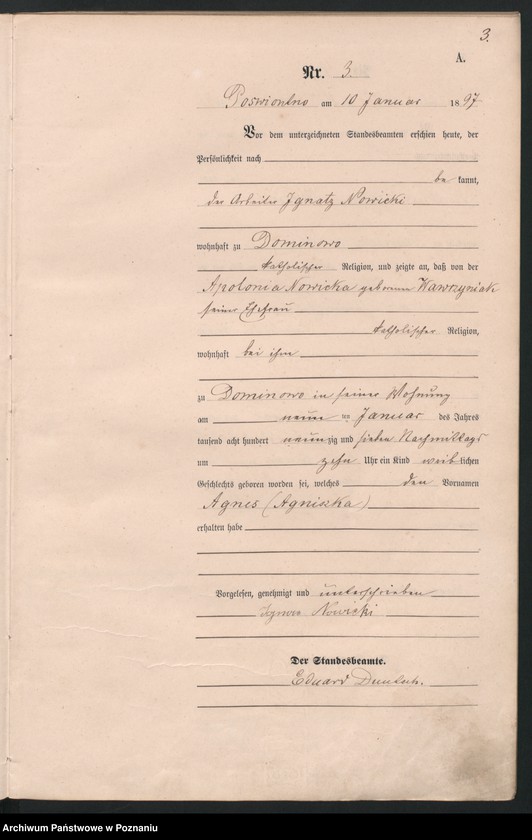 3.
A.
Nr. 3.
Poswiontno am 10 Januar 1897
Vor dem unterzeichneten Standesbeamten erschien heute, der
Persönlichkeit nach
be kannt,
der Arbeiter Ignatz Nowicki
wohnhaft zu Dominowo
katholischer Religion, und zeigte an, daß von der
Apolonia Nowicka geborenen Wawrzyniak
seiner Ehefrau
katholischer Religion,
wohnhaft bei ihm
zu Dominowo in seiner Wohnung
am neun ten Januar des Jahres
tausend acht hundert neunzig und sieben Nachmittags
um zehn Uhr ein Kind weiblichen
Geschlechts geboren worden sei, welches den Vornamen
Agnes (Agniszka)
erhalten habe
Vorgelesen, genehmigt und unterschrieben
Nowicki
Der Standesbeamte.
Eduard
Archiwum Państwowe w Poznaniu